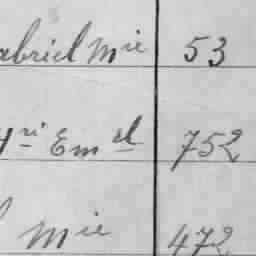 abriel Mie 53
ri Em el 752
Mie 472